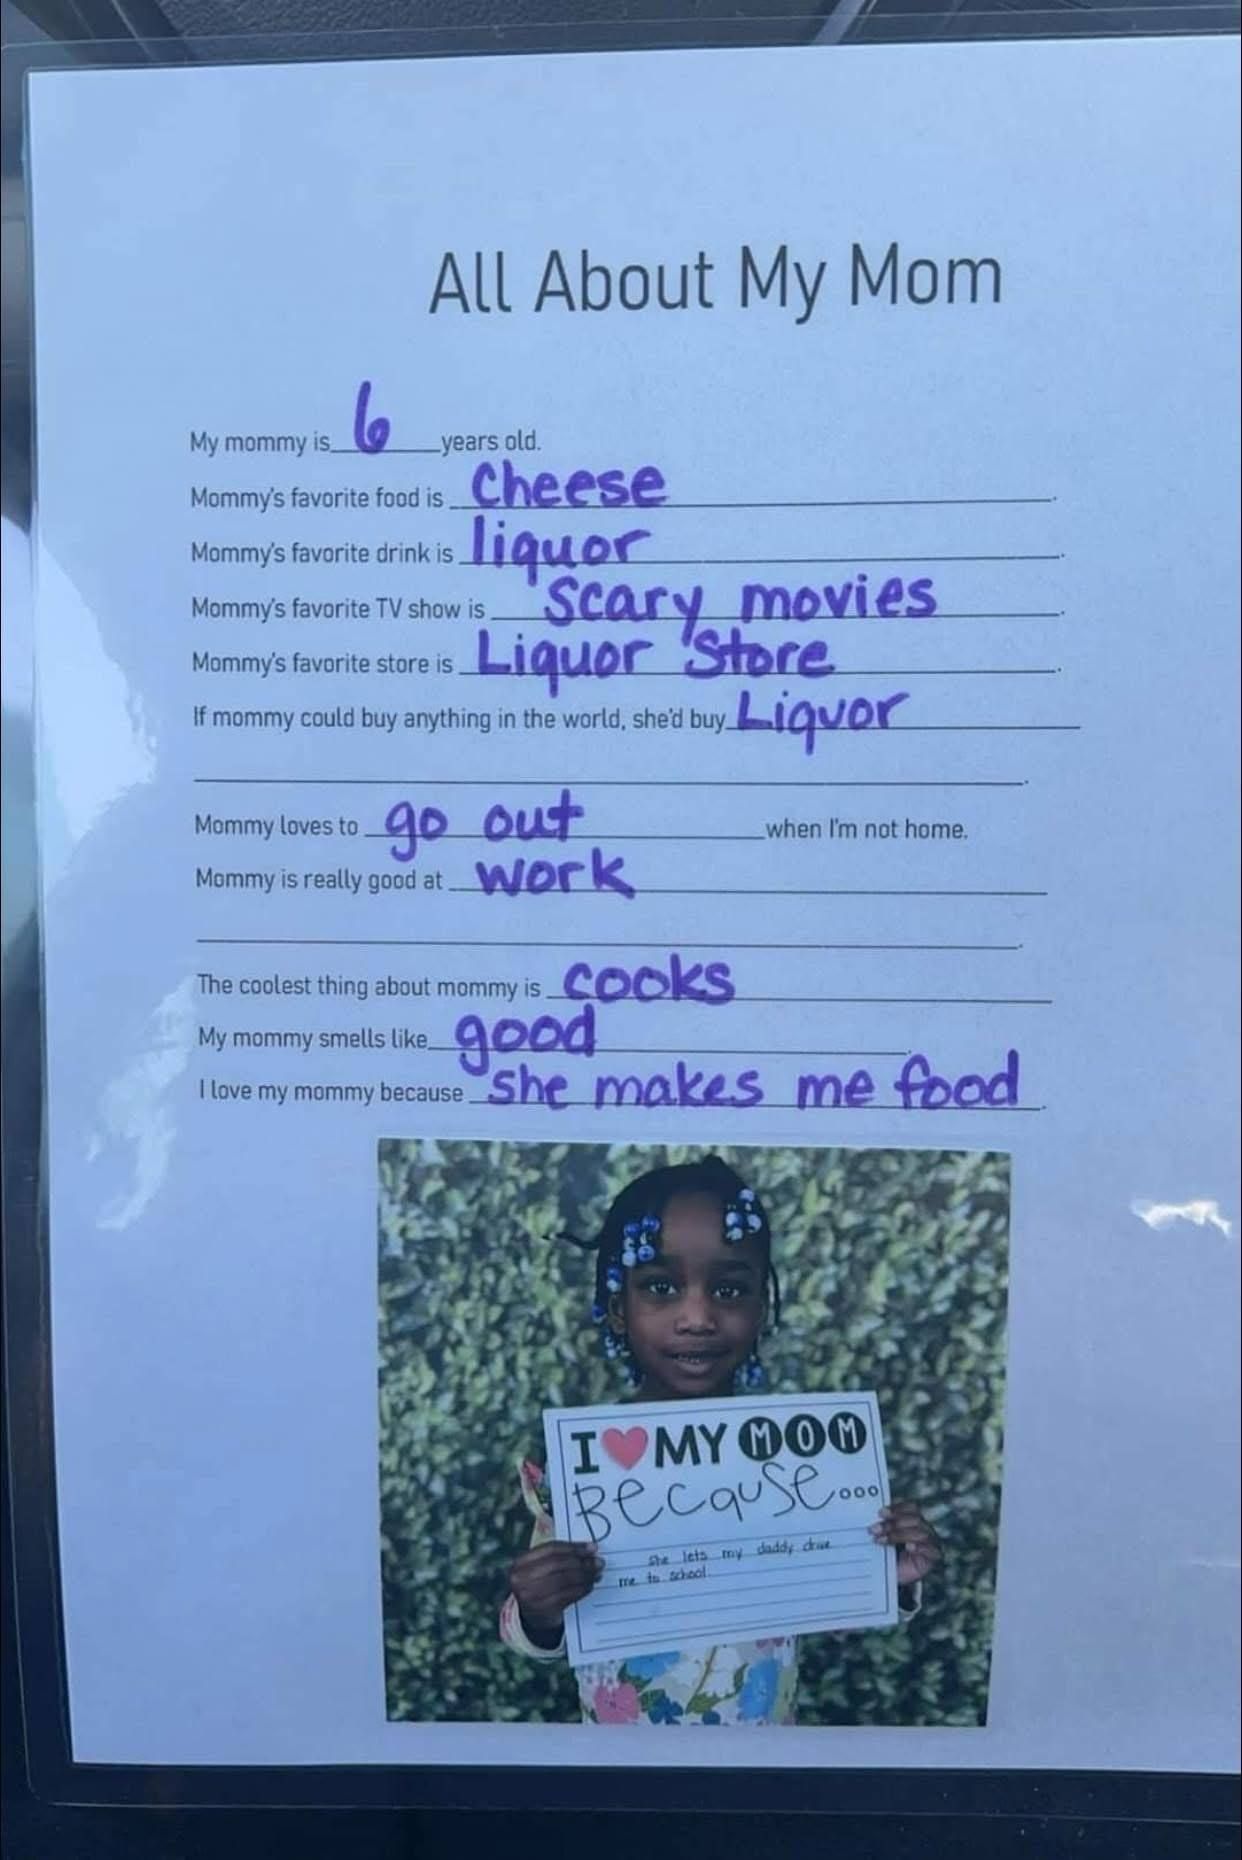 All About My Mom
My mommy is 6 years old.
Mommy's favorite food is Cheese.
Mommy's favorite drink is liquor.
Mommy's favorite TV show is Scary movies.
Mommy's favorite store is Liquor Store.
If mommy could buy anything in the world, she'd buy Liquor
.
Mommy loves to go out when I'm not home.
Mommy is really good at work
.
The coolest thing about mommy is cooks
My mommy smells like good.
I love my mommy because she makes me food.
I ❤ MY MOM
Because...
She lets my daddy drive
me to school